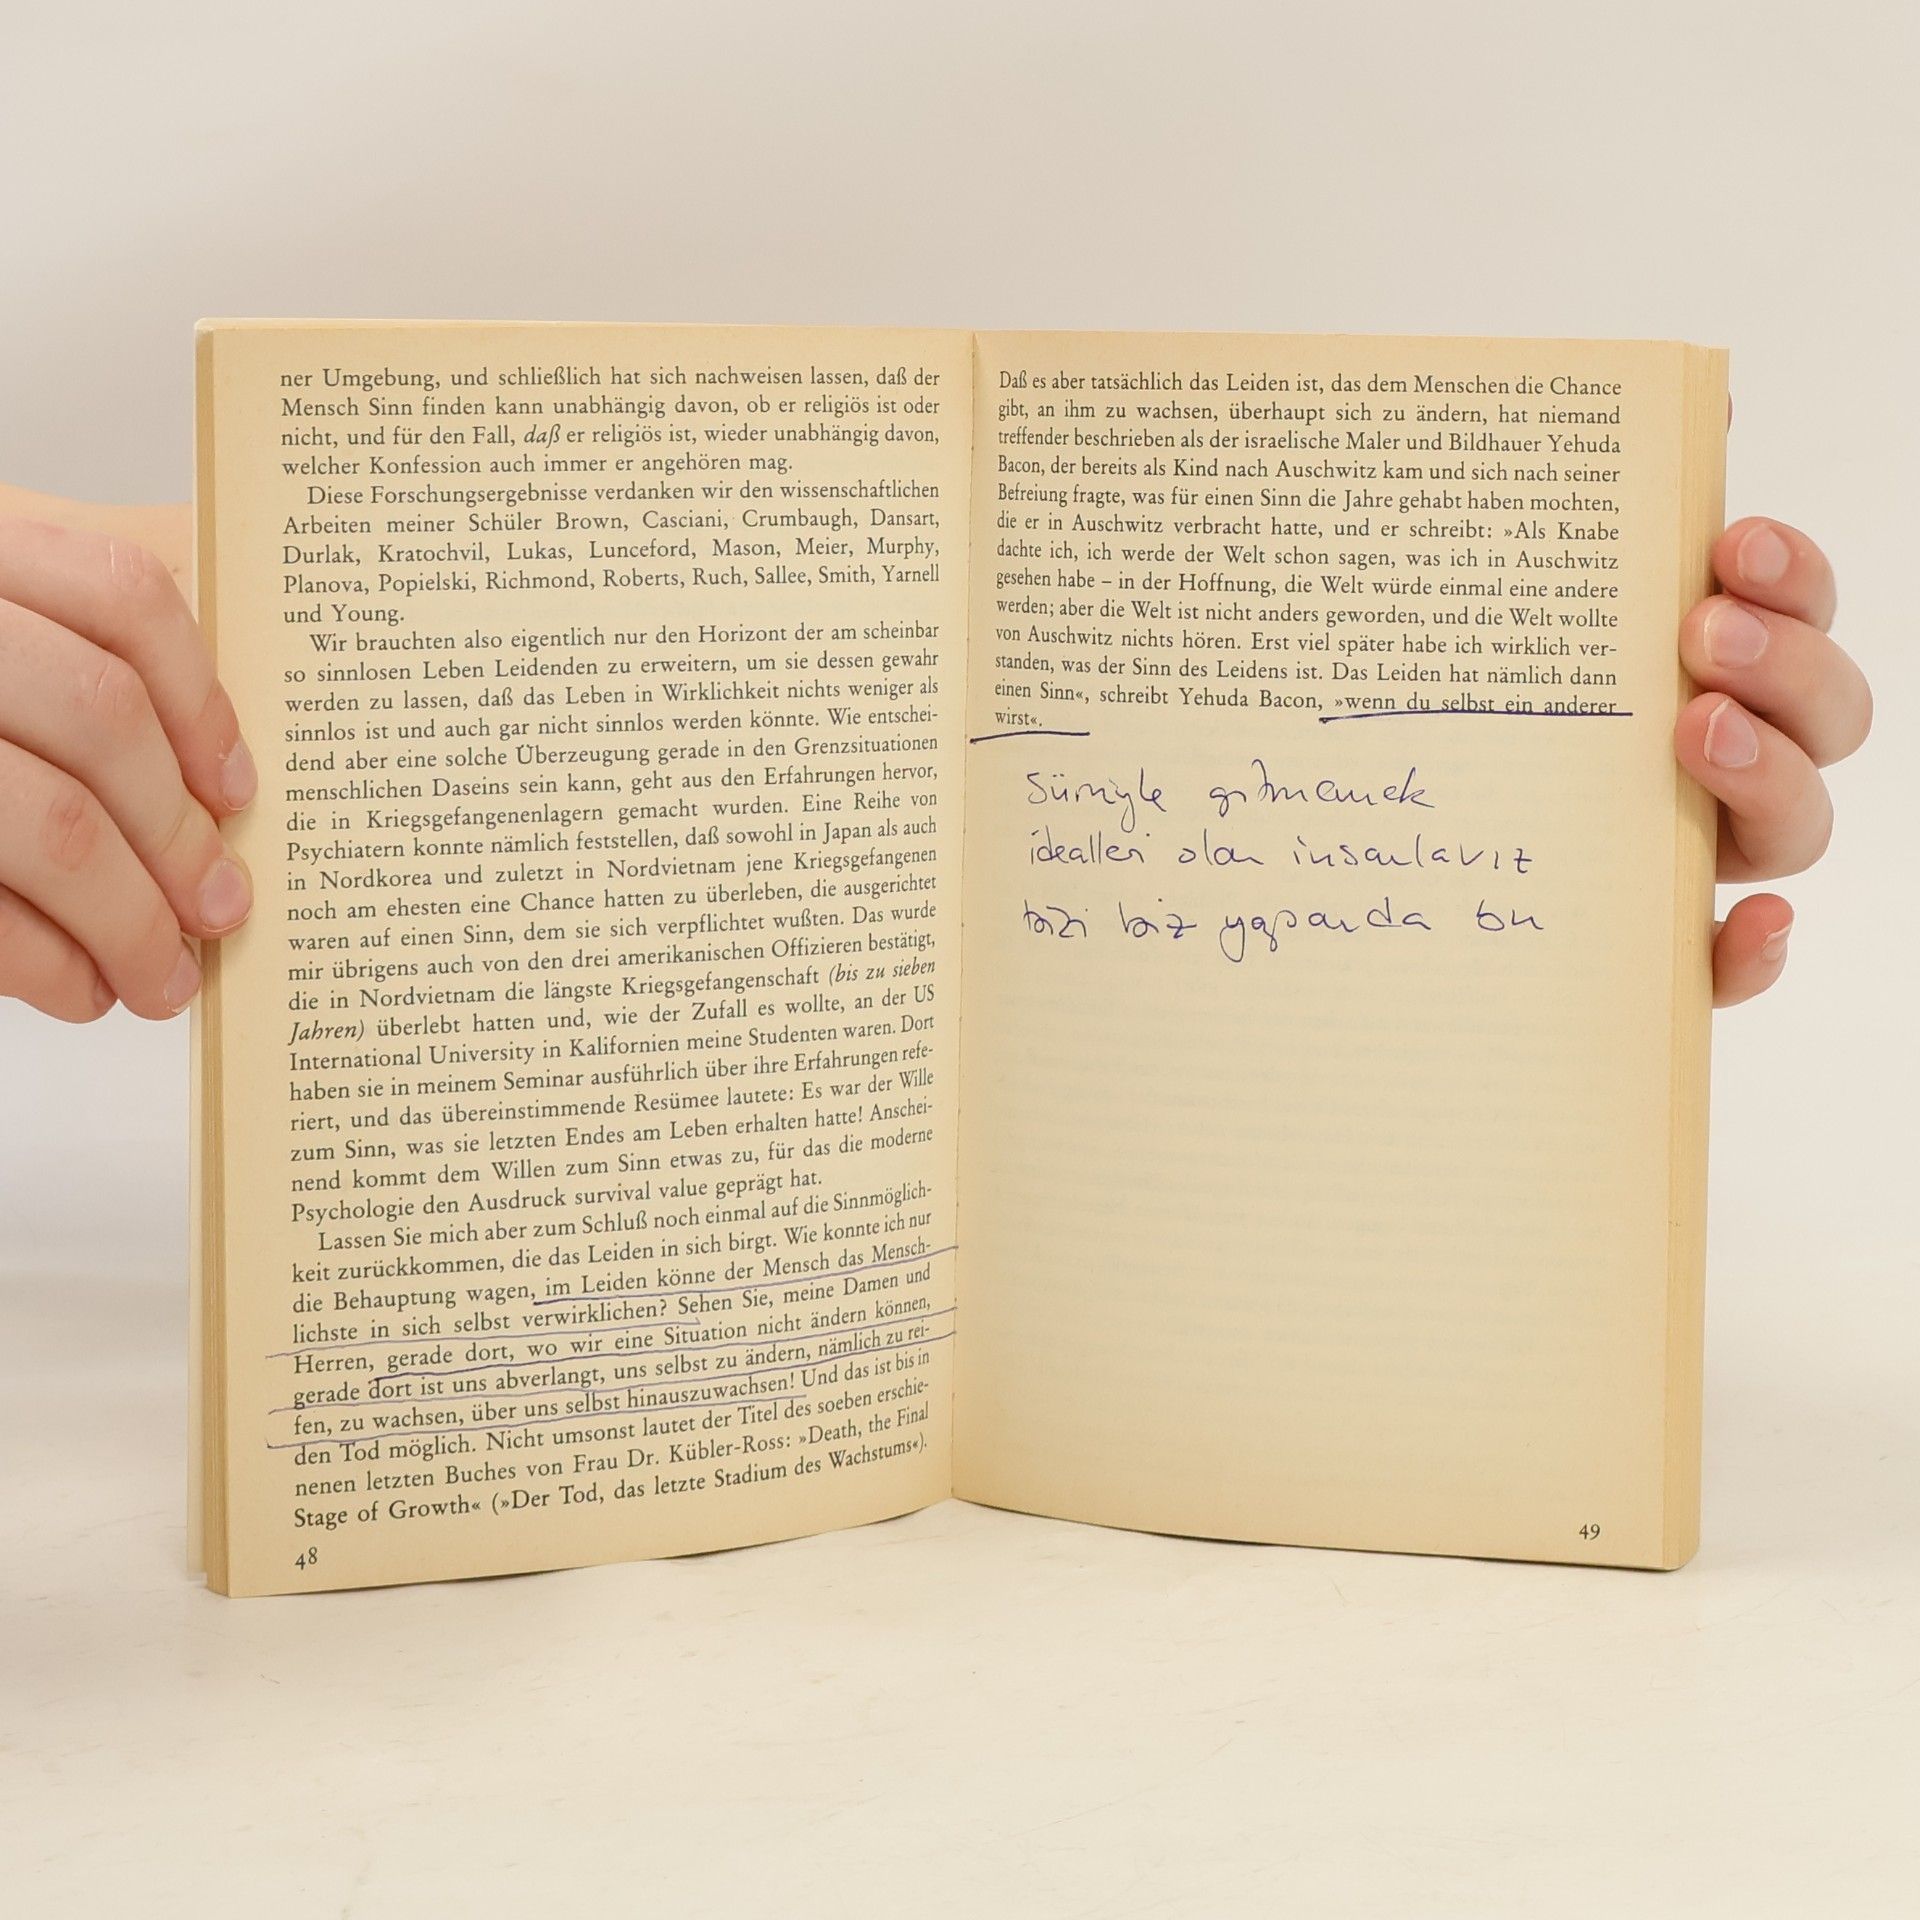 ner Umgebung, und schließlich hat sich nachweisen lassen, daß der
Mensch Sinn finden kann unabhängig davon, ob er religiös ist oder
nicht, und für den Fall, daß er religiös ist, wieder unabhängig davon,
welcher Konfession auch immer er angehören mag.
Diese Forschungsergebnisse verdanken wir den wissenschaftlichen
Arbeiten meiner Schüler Brown, Casciani, Crumbaugh, Dansart,
Durlak, Kratochvil, Lukas, Lunceford, Mason, Meier, Murphy,
Planova, Popielski, Richmond, Roberts, Ruch, Sallee, Smith, Yarnell
und Young.
Wir brauchten also eigentlich nur den Horizont der am scheinbar
so sinnlosen Leben Leidenden zu erweitern, um sie dessen gewahr
werden zu lassen, daß das Leben in Wirklichkeit nichts weniger als
sinnlos ist und auch gar nicht sinnlos werden könnte. Wie entschei-
dend aber eine solche Überzeugung gerade in den Grenzsituationen
menschlichen Daseins sein kann, geht aus den Erfahrungen hervor,
die in Kriegsgefangenenlagern gemacht wurden. Eine Reihe von
Psychiatern konnte nämlich feststellen, daß sowohl in Japan als auch
in Nordkorea und zuletzt in Nordvietnam jene Kriegsgefangenen
noch am ehesten eine Chance hatten zu überleben, die ausgerichtet
waren auf einen Sinn, dem sie sich verpflichtet wußten. Das wurde
mir übrigens auch von den drei amerikanischen Offizieren bestätigt,
die in Nordvietnam die längste Kriegsgefangenschaft (bis zu sieben
Jahren) überlebt hatten und, wie der Zufall es wollte, an der US
International University in Kalifornien meine Studenten waren. Dort
haben sie in meinem Seminar ausführlich über ihre Erfahrungen refe-
riert, und das übereinstimmende Resümee lautete: Es war der Wille
zum Sinn, was sie letzten Endes am Leben erhalten hatte! Anschei-
nend kommt dem Willen zum Sinn etwas zu, für das die moderne
Psychologie den Ausdruck survival value geprägt hat.
Lassen Sie mich aber zum Schluß noch einmal auf die Sinnmöglich-
keit zurückkommen, die das Leiden in sich birgt. Wie konnte ich nur
die Behauptung wagen, im Leiden könne der Mensch das Mensch-
lichste in sich selbst verwirklichen? Sehen Sie, meine Damen und
Herren, gerade dort, wo wir eine Situation nicht ändern können,
gerade dort ist uns abverlangt, uns selbst zu ändern, nämlich zu rei-
fen, zu wachsen, über uns selbst hinauszuwachsen! Und das ist bis in
den Tod möglich. Nicht umsonst lautet der Titel des soeben erschie-
nenen letzten Buches von Frau Dr. Kübler-Ross: »Death, the Final
Stage of Growth« (»Der Tod, das letzte Stadium des Wachstums«).
48
Daß es aber tatsächlich das Leiden ist, das dem Menschen die Chance
gibt, an ihm zu wachsen, überhaupt sich zu ändern, hat niemand
treffender beschrieben als der israelische Maler und Bildhauer Yehuda
Bacon, der bereits als Kind nach Auschwitz kam und sich nach seiner
Befreiung fragte, was für einen Sinn die Jahre gehabt haben mochten,
die er in Auschwitz verbracht hatte, und er schreibt: »Als Knabe
dachte ich, ich werde der Welt schon sagen, was ich in Auschwitz
gesehen habe – in der Hoffnung, die Welt würde einmal eine andere
werden; aber die Welt ist nicht anders geworden, und die Welt wollte
von Auschwitz nichts hören. Erst viel später habe ich wirklich ver-
standen, was der Sinn des Leidens ist. Das Leiden hat nämlich dann
einen Sinn«, schreibt Yehuda Bacon, »wenn du selbst ein anderer
wirst«.
gitmemek
idealleri olan insanlarız
bizi biz yapanda bu
49